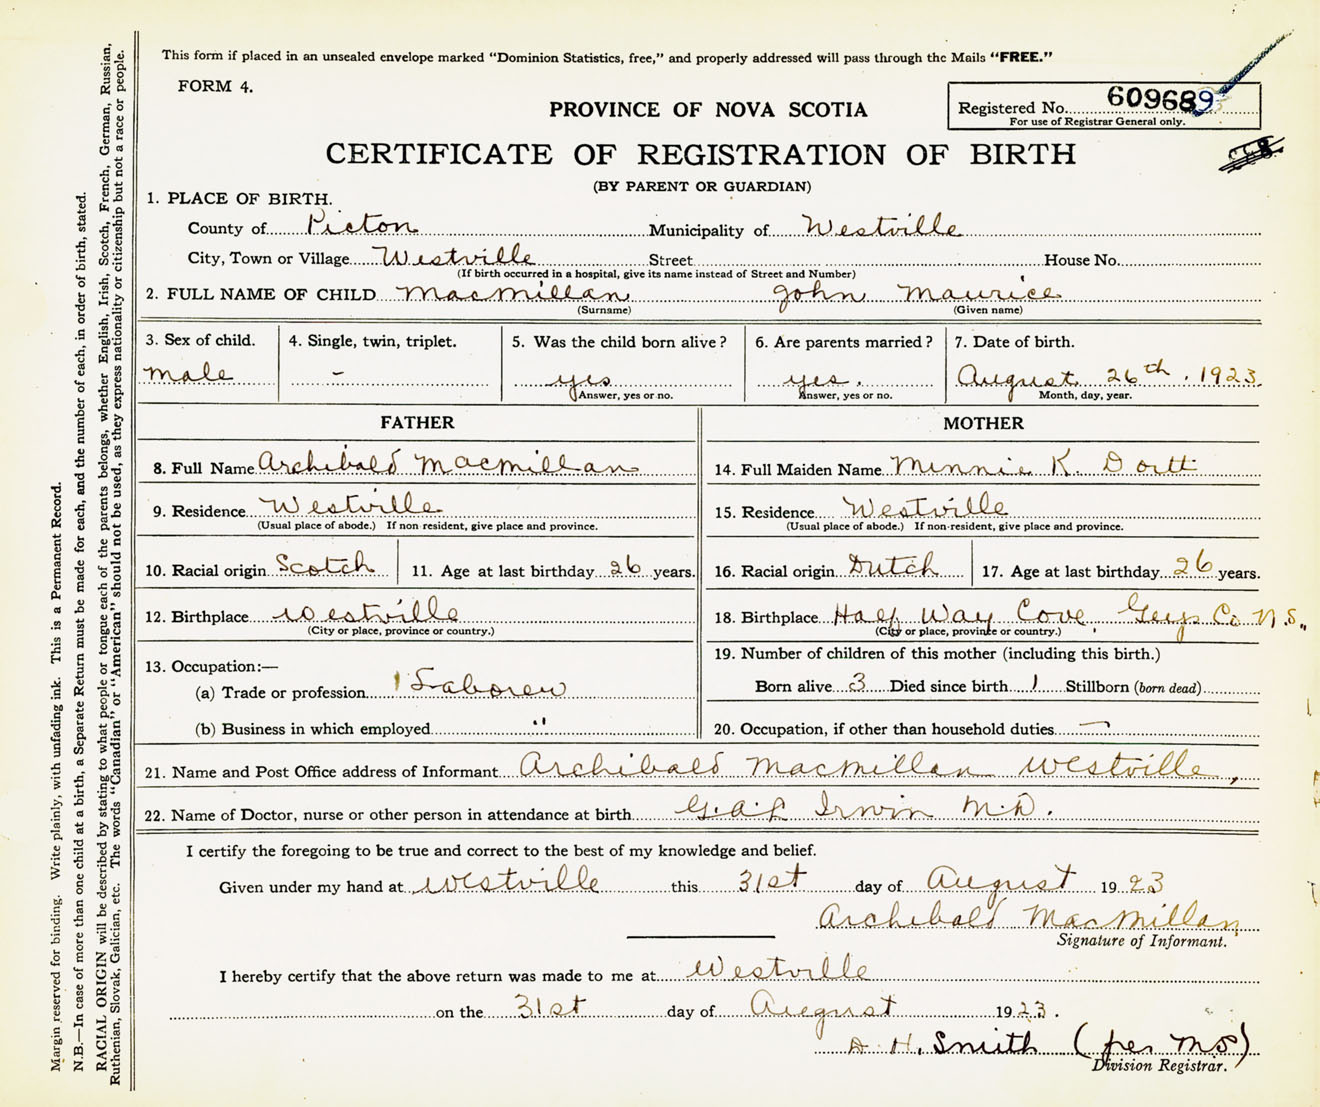 This form if placed in an unsealed envelope marked "Dominion Statistics, free," and properly addressed will pass through the Mails "FREE."
FORM 4.
Registered No. 609689
For use of Registrar General only.
PROVINCE OF NOVA SCOTIA
CERTIFICATE OF REGISTRATION OF BIRTH
(BY PARENT OR GUARDIAN)
1. PLACE OF BIRTH.
County of Picton Municipality of Westville
City, Town or Village Westville Street House No.
(If birth occurred in a hospital, give its name instead of Street and Number)
2. FULL NAME OF CHILD MacMillan John Maurice
(Surname) (Given name)
3. Sex of child. 4. Single, twin, triplet. 5. Was the child born alive? 6. Are parents married? 7. Date of birth.
male - yes yes. August 26th, 1923.
Answer, yes or no. Answer, yes or no. Month, day, year.
FATHER MOTHER
8. Full Name Archibald MacMillan 14. Full Maiden Name Minnie K. Dortt
9. Residence Westville 15. Residence Westville
(Usual place of abode.) If non-resident, give place and province. (Usual place of abode.) If non-resident, give place and province.
10. Racial origin Scotch 11. Age at last birthday 26 years. 16. Racial origin Dutch 17. Age at last birthday 26 years.
12. Birthplace Westville 18. Birthplace Half Way Cove, Guys Co N.S.
(City or place, province or country.) (City or place, province or country.)
13. Occupation:— 19. Number of children of this mother (including this birth.)
(a) Trade or profession Laborer Born alive 3 Died since birth 1 Stillborn (born dead)
(b) Business in which employed " 20. Occupation, if other than household duties —
21. Name and Post Office address of Informant Archibald MacMillan Westville,
22. Name of Doctor, nurse or other person in attendance at birth Irwin M.D.
I certify the foregoing to be true and correct to the best of my knowledge and belief.
Given under my hand at Westville this 31st day of August 1923
Archibald MacMillan
Signature of Informant.
I hereby certify that the above return was made to me at Westville
on the 31st day of August 1923.
H. Smith (per MS)
Division Registrar.
Margin reserved for binding. Write plainly, with unfading ink. This is a Permanent Record.
N.B.—In case of more than one child at a birth, a Separate Return must be made for each, and the number of each, in order of birth, stated.
RACIAL ORIGIN will be described by stating to what people or tongue each of the parents belongs, whether English, Irish, Scotch, French, German, Russian,
Ruthenian, Slovak, Galician, etc. The words "Canadian" or "American" should not be used, as they express nationality or citizenship but not a race or people.